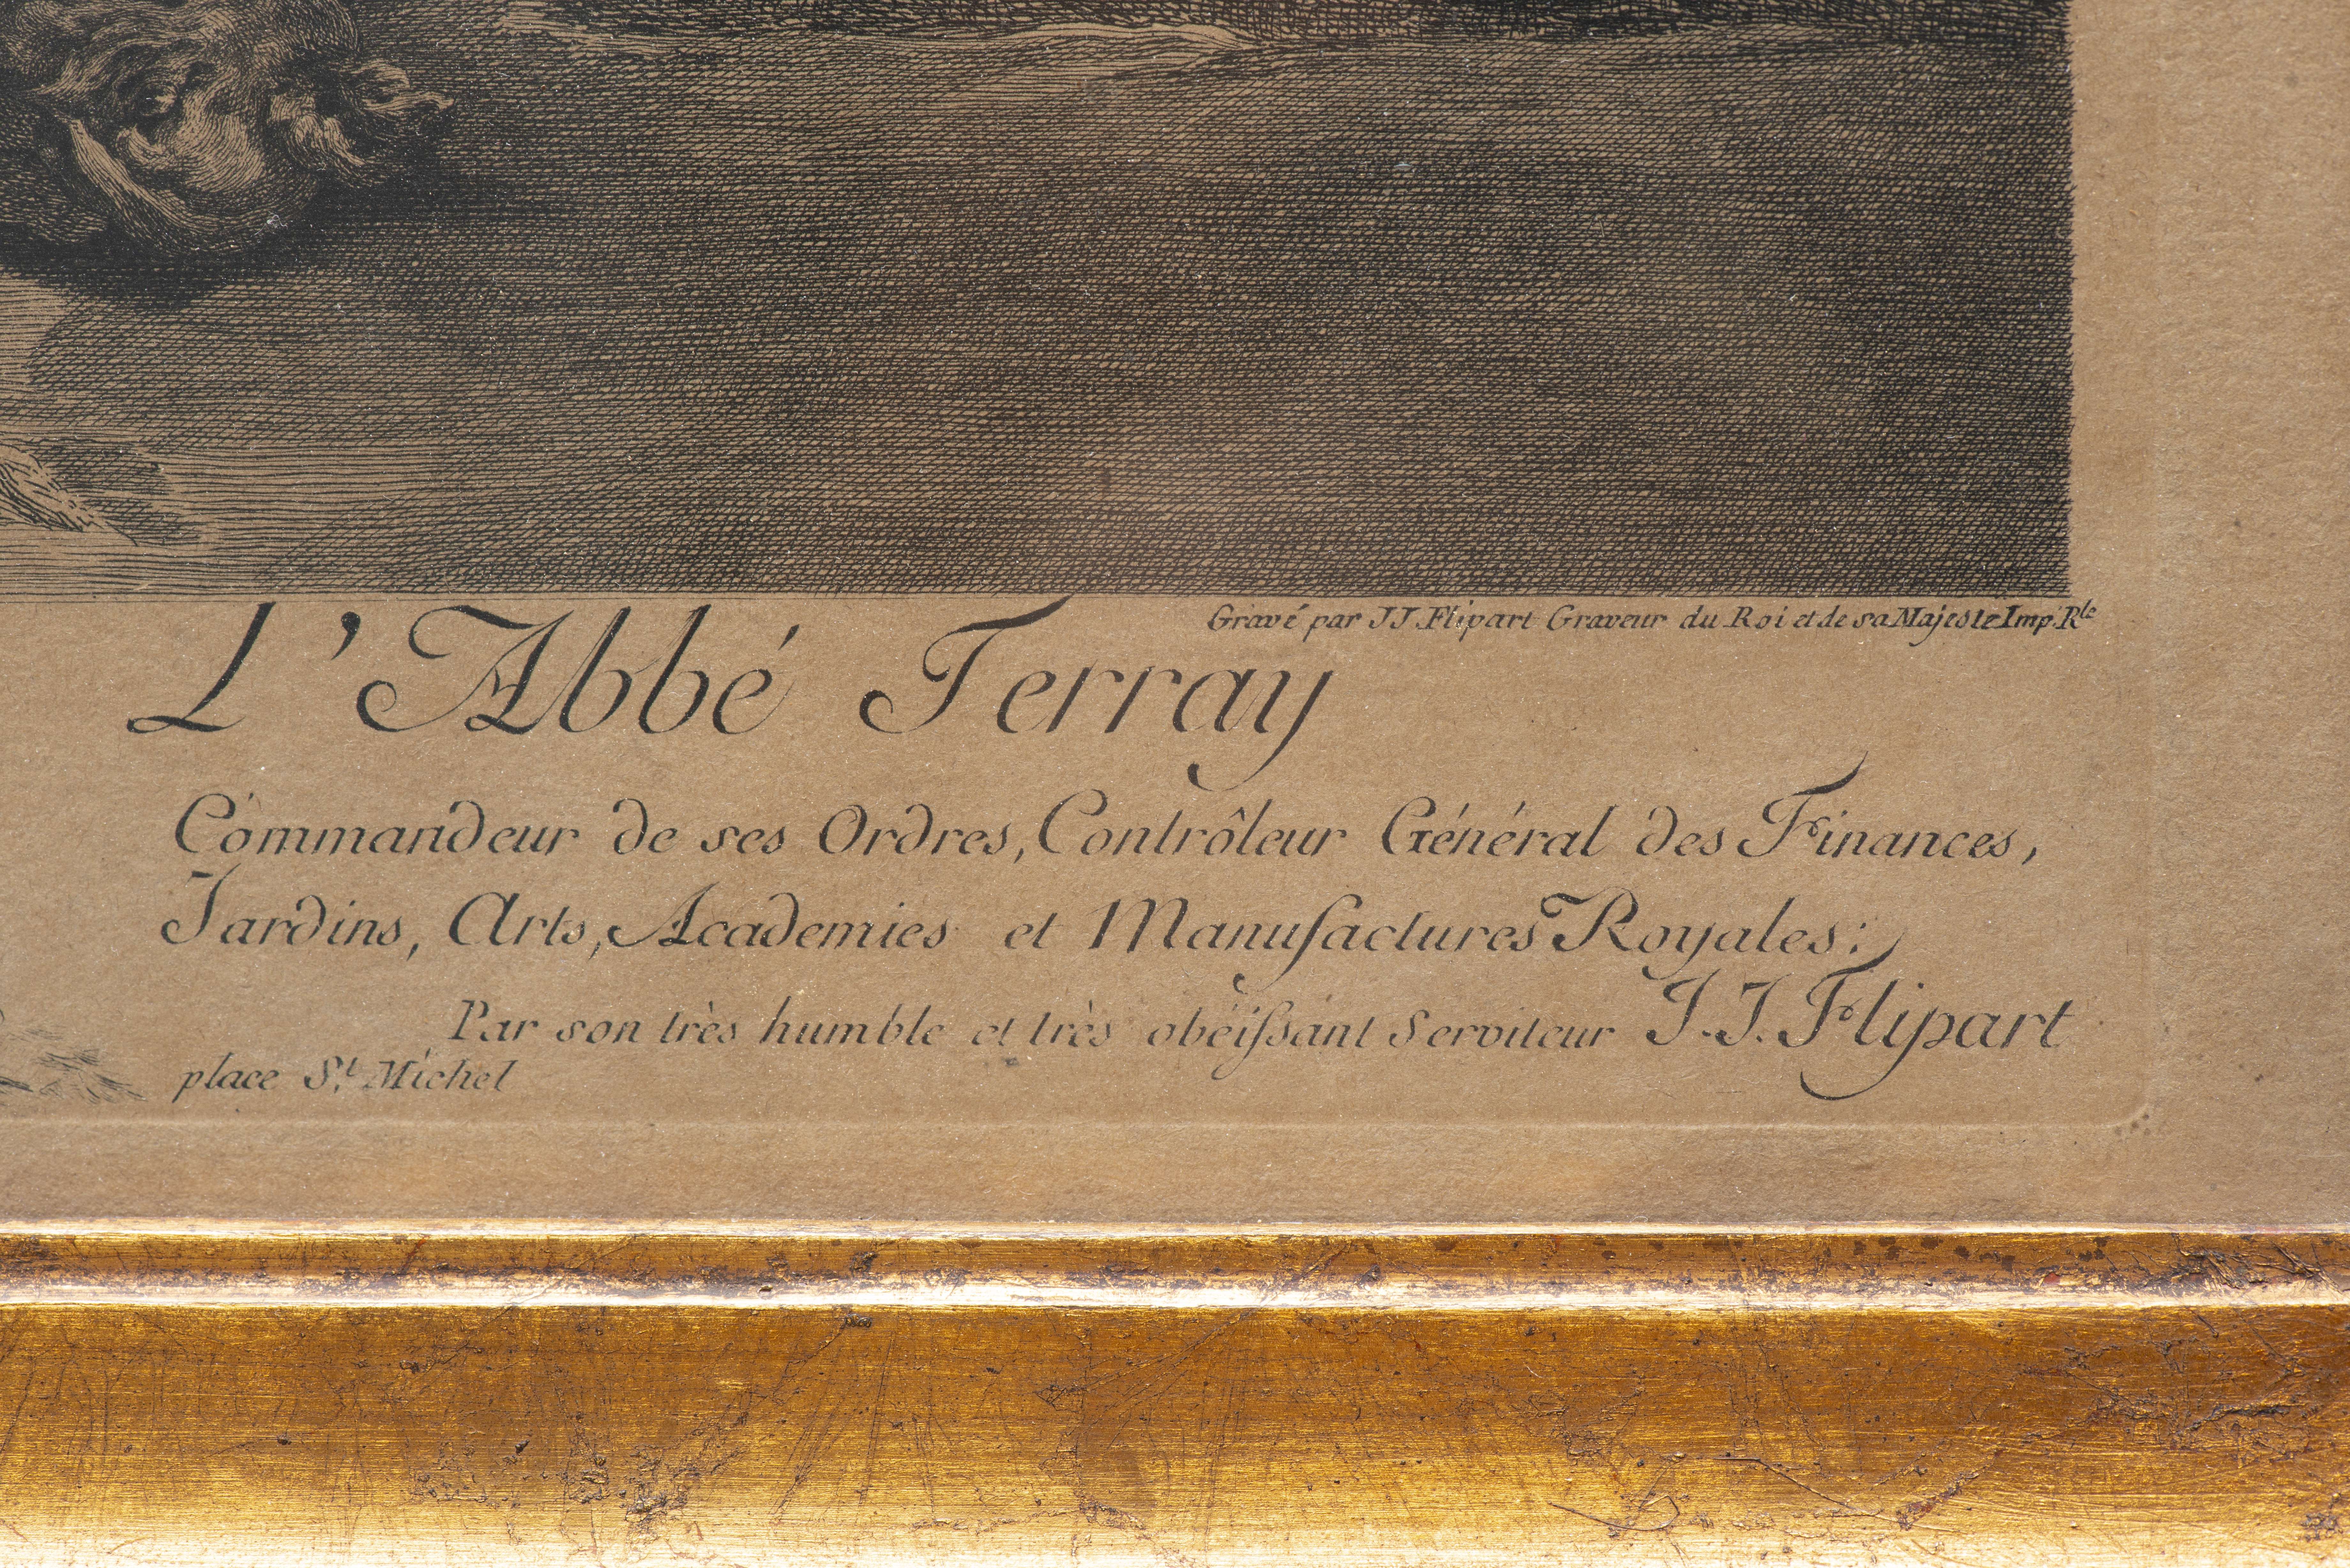 Gravé par J J. Flipart Graveur du Roi et de sa Majesté Imp. Rle
L'Abbé Terray
Commandeur de ses Ordres, Contrôleur Général des Finances,
Jardins, Arts, Academies et Manufactures Royales;
Par son très humble et très obéiſsant Serviteur J. J. Flipart
place St. Michel